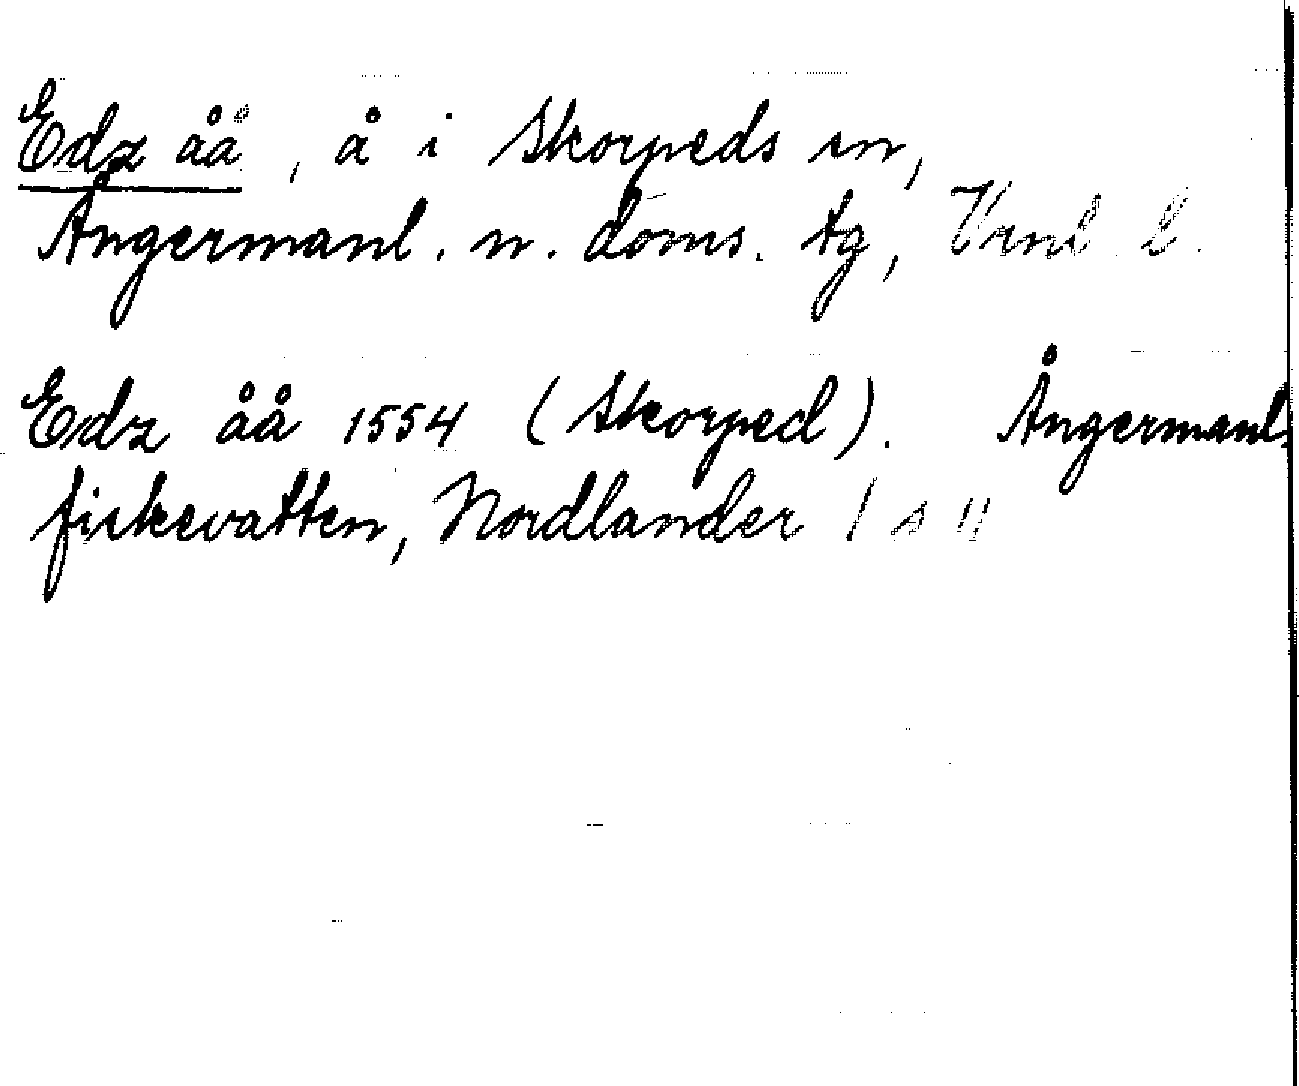 Edz åå, å i Skorpeds sn,
Ångermanl. n. doms. tg, Vrnl l.
Edz åå 1554 (Skorped). Ångermanl.
fiskevatten, Nordlander 1 s 11